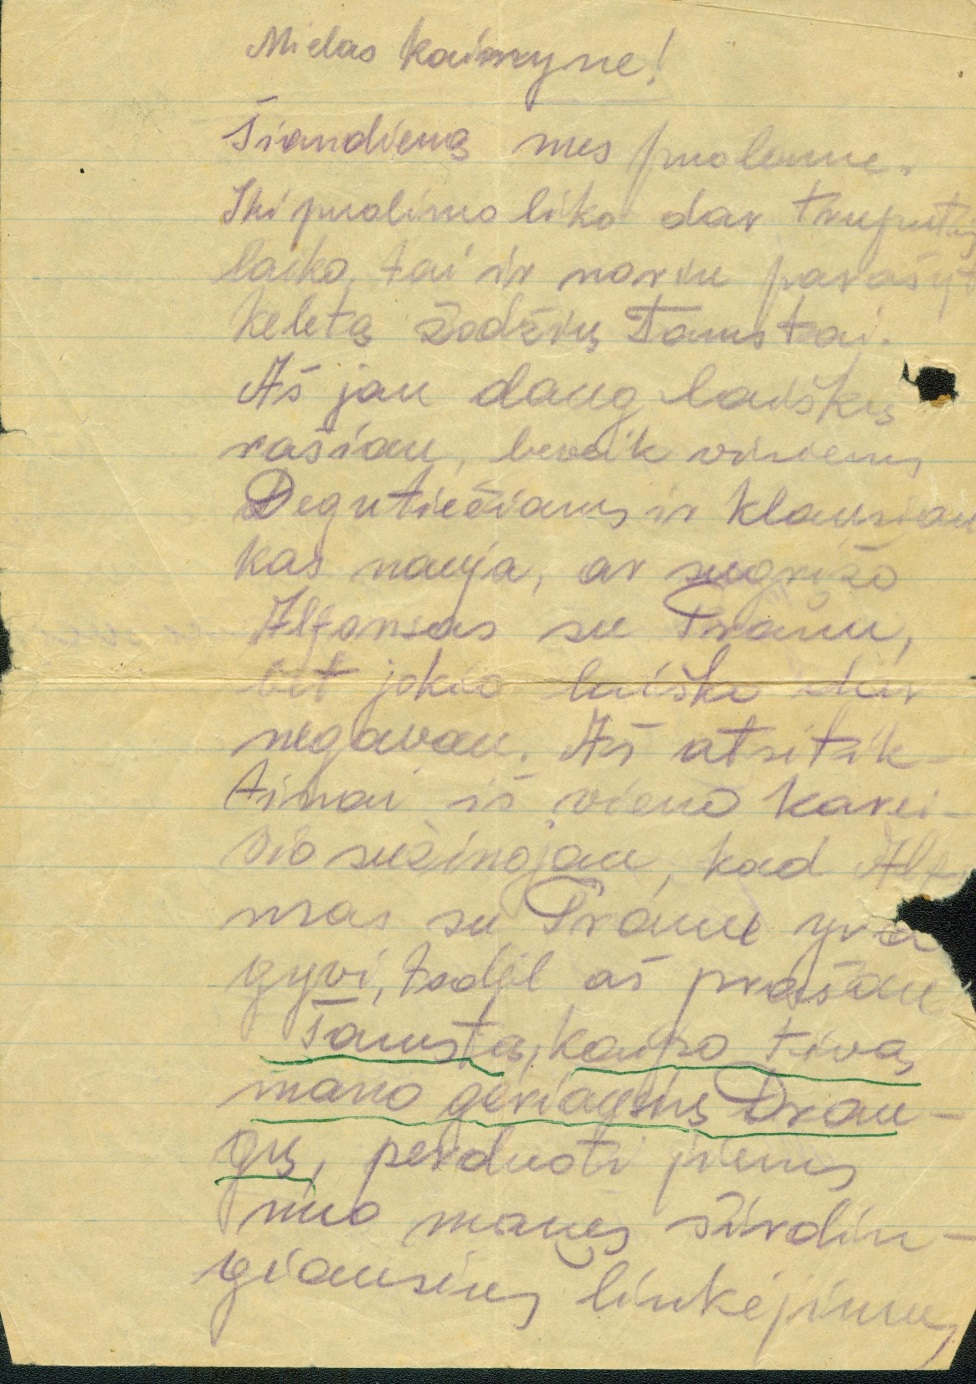 Mielas kaimyne!
Šiandieną mes puolame.
Iki puolimo liko dar truputis
laiko, tai ir noriu parašyt
keletą žodžių Tamstai.
Aš jau daug laiškų
rašiau, beveik visiems
Degutiečiams ir klausiau
kas nauja, ar sugrįžo
Alfonsas su Pranu,
bet jokio laiško dar
negavau. Aš atsitik-
tinai iš vieno karei-
vio sužinojau, kad Alfo
nsas su Pranu yra
gyvi, todėl aš prašau
Tamstą, kaipo tėvą
mano geriausių Drau-
gų, perduoti jiems
nuo manęs širdin-
giausius linkėjimus,